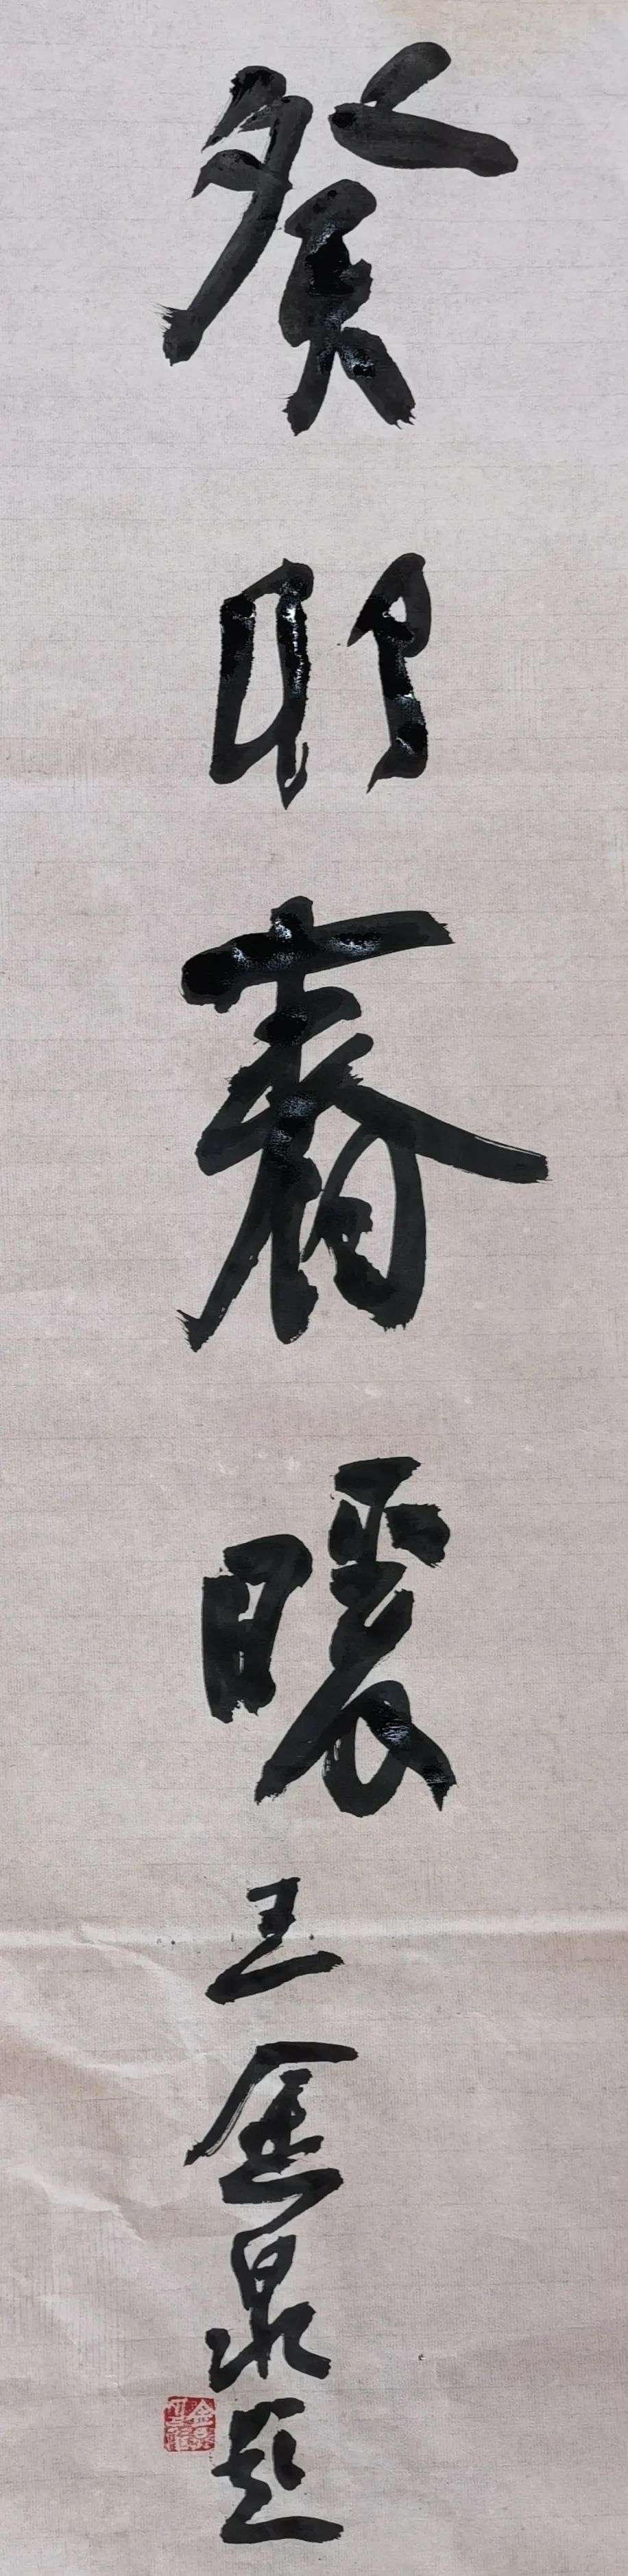 癸卯春暖
王金泉题